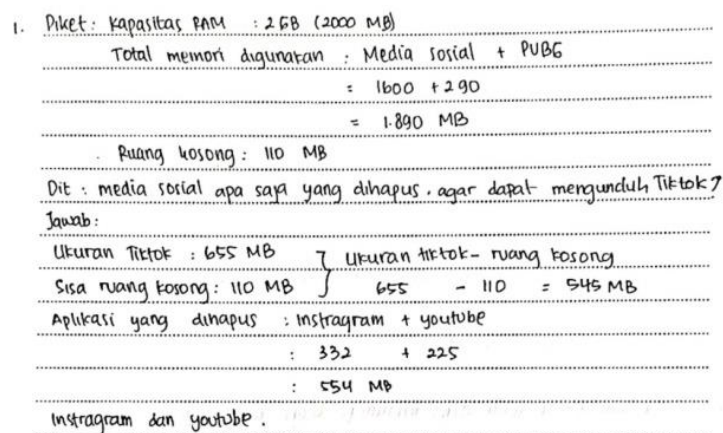 1. Diket : kapasitas RAM : 2 GB (2000 MB)
Total memori digunakan : Media sosial + PUBG
= 1600 + 290
= 1.890 MB
Ruang kosong : 110 MB
Dit : media sosial apa saja yang dihapus . agar dapat mengunduh Tiktok ?
Jawab :
Ukuran Tiktok : 655 MB } Ukuran tiktok - ruang kosong
Sisa ruang kosong : 110 MB 655 - 110 = 545 MB
Aplikasi yang dihapus : Instragram + youtube
: 332 + 225
: 554 MB
Instragram dan youtube .